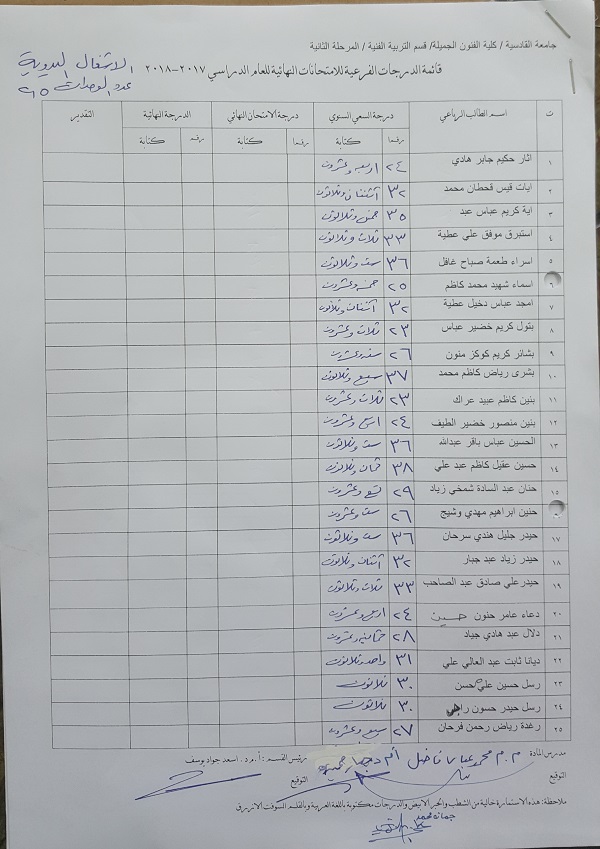 جامعة القادسية / كلية الفنون الجميلة/ قسم التربية الفنية / المرحلة الثانية
قائمة الدرجات الفرعية للامتحانات النهائية للعام الدراسي ٢٠١٧-٢٠١٨
الاشغال اليدوية
عدد الوحدات
ت اسم الطالب الرباعي درجة السعي السنوي درجة الامتحان النهائي الدرجة النهائية التقدير
رقما كتابة رقما كتابة رقما كتابة
١ اثار حكيم جابر هادي ٢٤ اربعة وعشرون
٢ ايات قيس قحطان محمد ٣٢ أثنان وثلاثون
٣ اية كريم عباس عبد ٣٥ خمس وثلاثون
٤ استبرق موفق علي عطية ٣٣ ثلاث وثلاثون
٥ اسراء طعمة صباح غافل ٣٦ ست وثلاثون
٦ اسماء شهيد محمد كاظم ٢٥ خمسة وعشرون
٧ امجد عباس دخيل عطية ٣٢ أثنان وثلاثون
٨ بتول كريم خضير عباس ٢٣ ثلاث وعشرون
٩ بشائر كريم كوكز منون ٢٦ ستة وعشرون
١٠ بشرى رياض كاظم محمد ٣٧ سبع وثلاثون
١١ بنين كاظم عبيد عراك ٢٣ ثلاث وعشرون
١٢ بنين منصور خضير الطيف ٢٤ اربع وعشرون
١٣ الحسين عباس باقر عبدالله ٣٦ ست وثلاثون
١٤ حسين عقيل كاظم عبد علي ٣٨ ثمان وثلاثون
١٥ حنان عبد السادة شمخي زياد ٢٩ تسع وعشرون
حنين ابراهيم مهدي وشيج ٢٦ ست وعشرون
١٧ حيدر جليل هندي سرحان ٣٦ ست وثلاثون
١٨ حيدر زياد عبد جبار ٣٢ أثنان وثلاثون
١٩ حيدرعلي صادق عبد الصاحب ٣٣ ثلاث وثلاثون
٢٠ دعاء عامر حنون حسين ٢٤ اربع وعشرون
٢١ دلال عبد هادي جياد ٢٨ ثمانية وعشرون
٢٢ ديانا ثابت عبد العالي علي ٣١ واحد وثلاثون
٢٣ رسل حسين علي حسن ٣٠ ثلاثون
٢٤ رسل حيدر حسون راجي ٣٠ ثلاثون
٢٥ رغدة رياض رحمن فرحان ٢٧ سبع وعشرون
مدرس المادة م.م محمد عباس فاضل رئيس القسم : أ.م.د. اسعد جواد يوسف
التوقيع التوقيع
ملاحظة: هذه الاستمارة خالية من الشطب والحبر الابيض والدرجات مكتوبة باللغة العربية وبالقلم السوفت الازرق
جمانه محمد